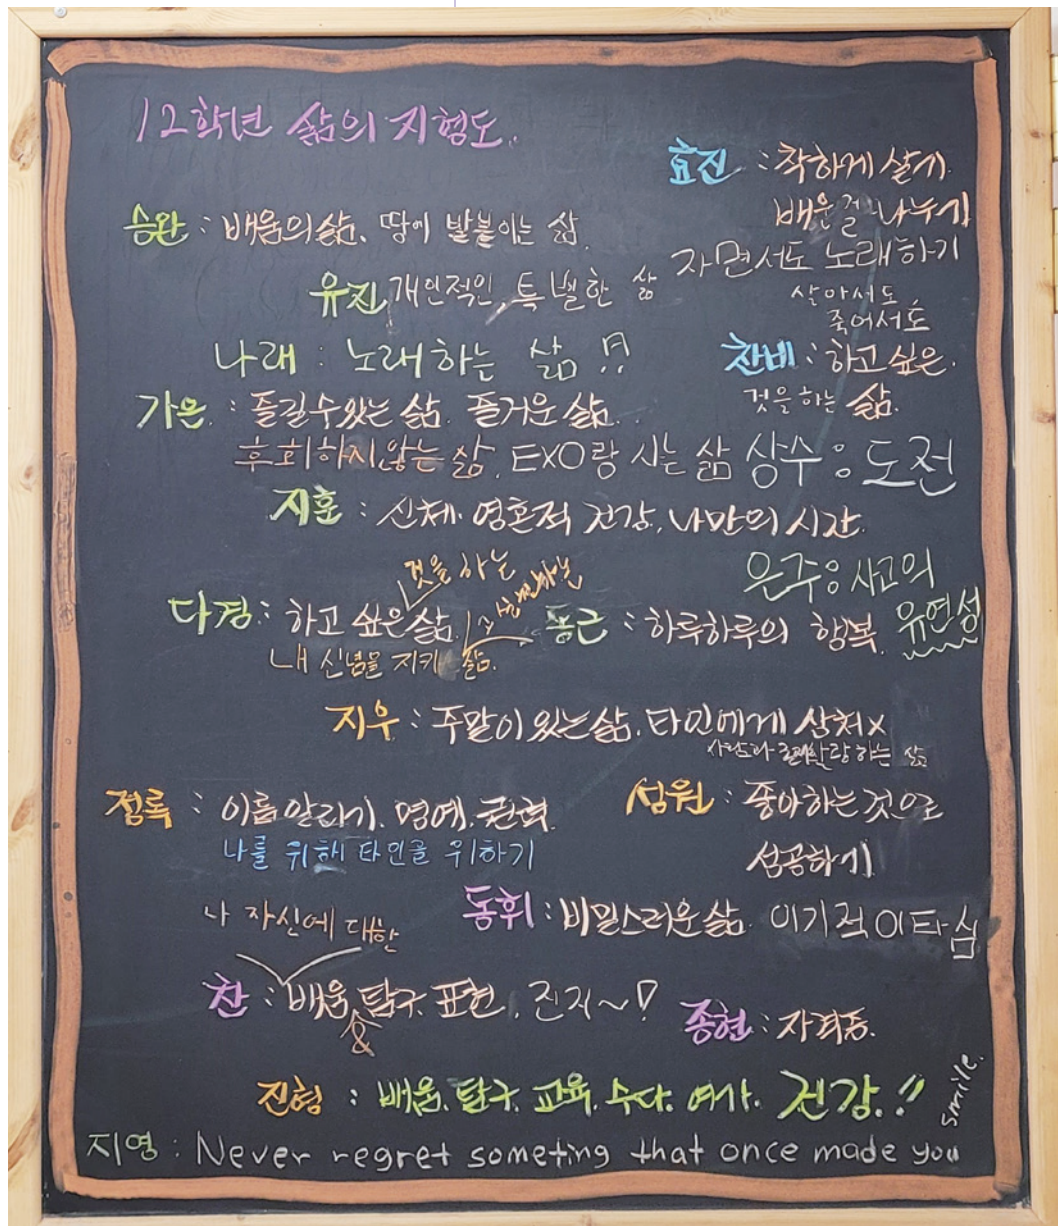 12학년 삶의 지형도.
효진 : 착하게 살기
배운걸 나누기
자면서도 노래하기
살아서도,
죽어서도
승완 : 배움의 삶. 땅에 발붙이는 삶.
유진 개인적인, 특별한 삶
나래 : 노래하는 삶
찬비 : 하고 싶은.
것을 하는 삶.
가온 : 즐길 수 있는 삶. 즐거운 삶.
후회하지 않는 삶, EXO랑 사는 삶
상수 : 도전
지훈 : 신체. 영혼적 건강, 나만의 시간.
은주 : 사고의
유연성
다경 : 하고 싶은 삶.
것을 하는
내 신념을 지키 삶.
동근 : 하루하루의 행복.
지우 : 주말이 있는 삶. 타인에게 상처 x
하는 삶
정록 : 이름 알리기. 명예. 권력.
나를 위해 타인을 위하기
성원 : 좋아하는 것으로
성공하기
동휘 : 비밀스러운 삶. 이기적 이타심
나 자신에 대한
찬 : 배움, 탐구. 표현, 진지~!
&
종현 : 자격증.
진형 : 배움. 탐구. 교육. 수다. 여가. 건강.!!
지영 : Never regret someting that once made you
smile.